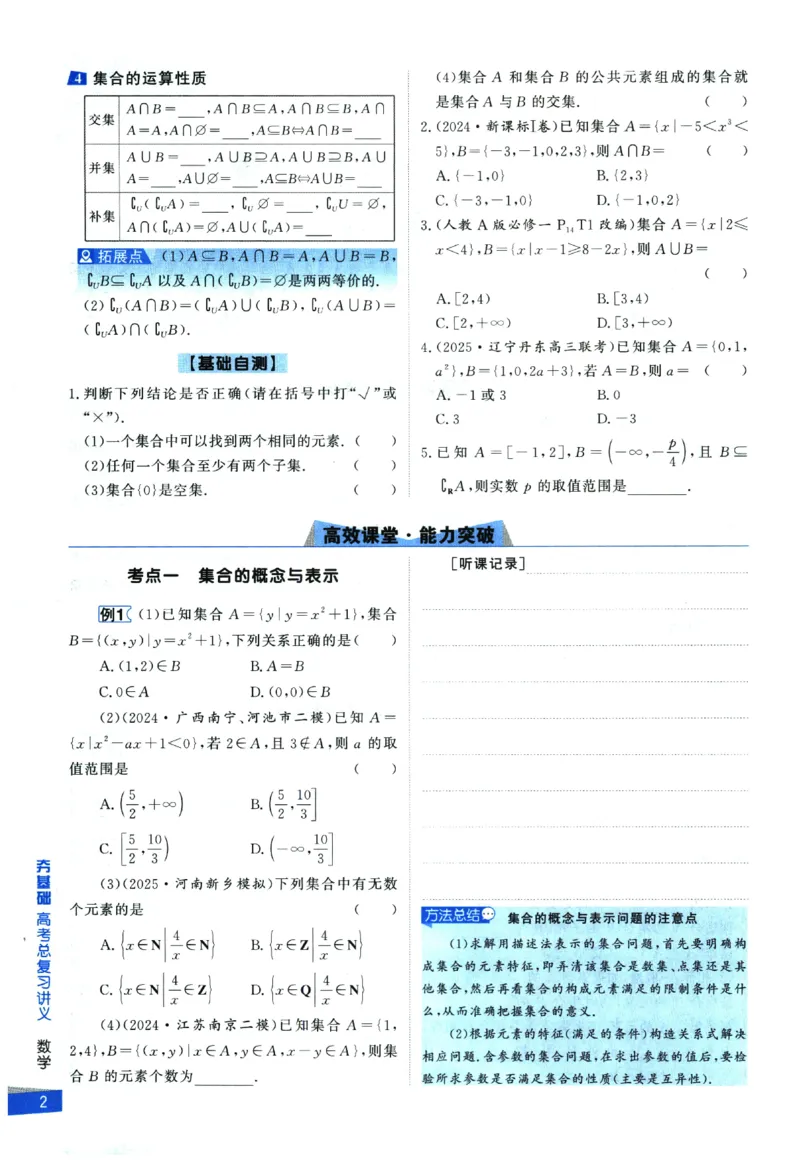 4 集合的运算性质
交集 A∩B=___,A∩B⊆A,A∩B⊆B,A∩
A=A,A∩∅=___,A⊆B⇔A∩B=___
并集 A∪B=___,A∪B⊇A,A∪B⊇B,A∪
A=___,A∪∅=___,A⊆B⇔A∪B=___
补集 ∁UA(∁UA)=___,∁U∅=___,∁UU=∅,
A∩(∁UA)=∅,A∪(∁UA)=___
拓展点 (1)A⊆B,A∩B=A,A∪B=B,
∁UB⊆∁UA以及A∩(∁UB)=∅是两两等价的.
(2)∁U(A∩B)=(∁UA)∪(∁UB),∁U(A∪B)=
(∁UA)∩(∁UB).
【基础自测】
1.判断下列结论是否正确(请在括号中打“√”或
“×”).
(1)一个集合中可以找到两个相同的元素.( )
(2)任何一个集合至少有两个子集. ( )
(3)集合{0}是空集. ( )
(4)集合A和集合B的公共元素组成的集合就
是集合A与B的交集. ( )
2.(2024·新课标Ⅰ卷)已知集合A={x|-5<x³<
5},B={-3,-1,0,2,3},则A∩B= ( )
A.{-1,0} B.{2,3}
C.{-3,-1,0} D.{-1,0,2}
3.(人教A版必修一P₁₄T1改编)集合A={x|2≤
x<4},B={x|x-1≥8-2x},则A∪B=
( )
A.[2,4) B.[3,4)
C.[2,+∞) D.[3,+∞)
4.(2025·辽宁丹东高三联考)已知集合A={0,1,
a²},B={1,0,2a+3},若A=B,则a= ( )
A.-1或3 B.0
C.3 D.-3
5.已知A=[-1,2],B=(-∞,-p/4),且B⊆
∁RA,则实数p的取值范围是______.
高效课堂·能力突破
考点一 集合的概念与表示
例1 (1)已知集合A={y|y=x²+1},集合
B={(x,y)|y=x²+1},下列关系正确的是( )
A.(1,2)∈B B.A=B
C.0∈A D.(0,0)∈B
(2)(2024·广西南宁、河池市二模)已知A=
{x|x²-ax+1<0},若2∈A,且3∉A,则a的取
值范围是 ( )
A.(5/2,+∞) B.(5/2,10/3]
C.[5/2,10/3) D.(-∞,10/3]
(3)(2025·河南新乡模拟)下列集合中有无数
个元素的是 ( )
A.{x∈N|4/x∈N} B.{x∈Z|4/x∈N}
C.{x∈N|4/x∈Z} D.{x∈Q|4/x∈N}
(4)(2024·江苏南京二模)已知集合A={1,
2,4},B={(x,y)|x∈A,y∈A,x-y∈A},则集
合B的元素个数为______.
[听课记录]
方法总结 集合的概念与表示问题的注意点
(1)求解用描述法表示的集合问题,首先要明确构
成集合的元素特征,即弄清该集合是数集、点集还是其
他集合,然后再看集合的构成元素满足的限制条件是什
么,从而准确把握集合的意义.
(2)根据元素的特征(满足的条件)构造关系式解决
相应问题.含参数的集合问题,在求出参数的值后,要检
验所求参数是否满足集合的性质(主要是互异性).
夯基础 高考总复习讲义 数学
2